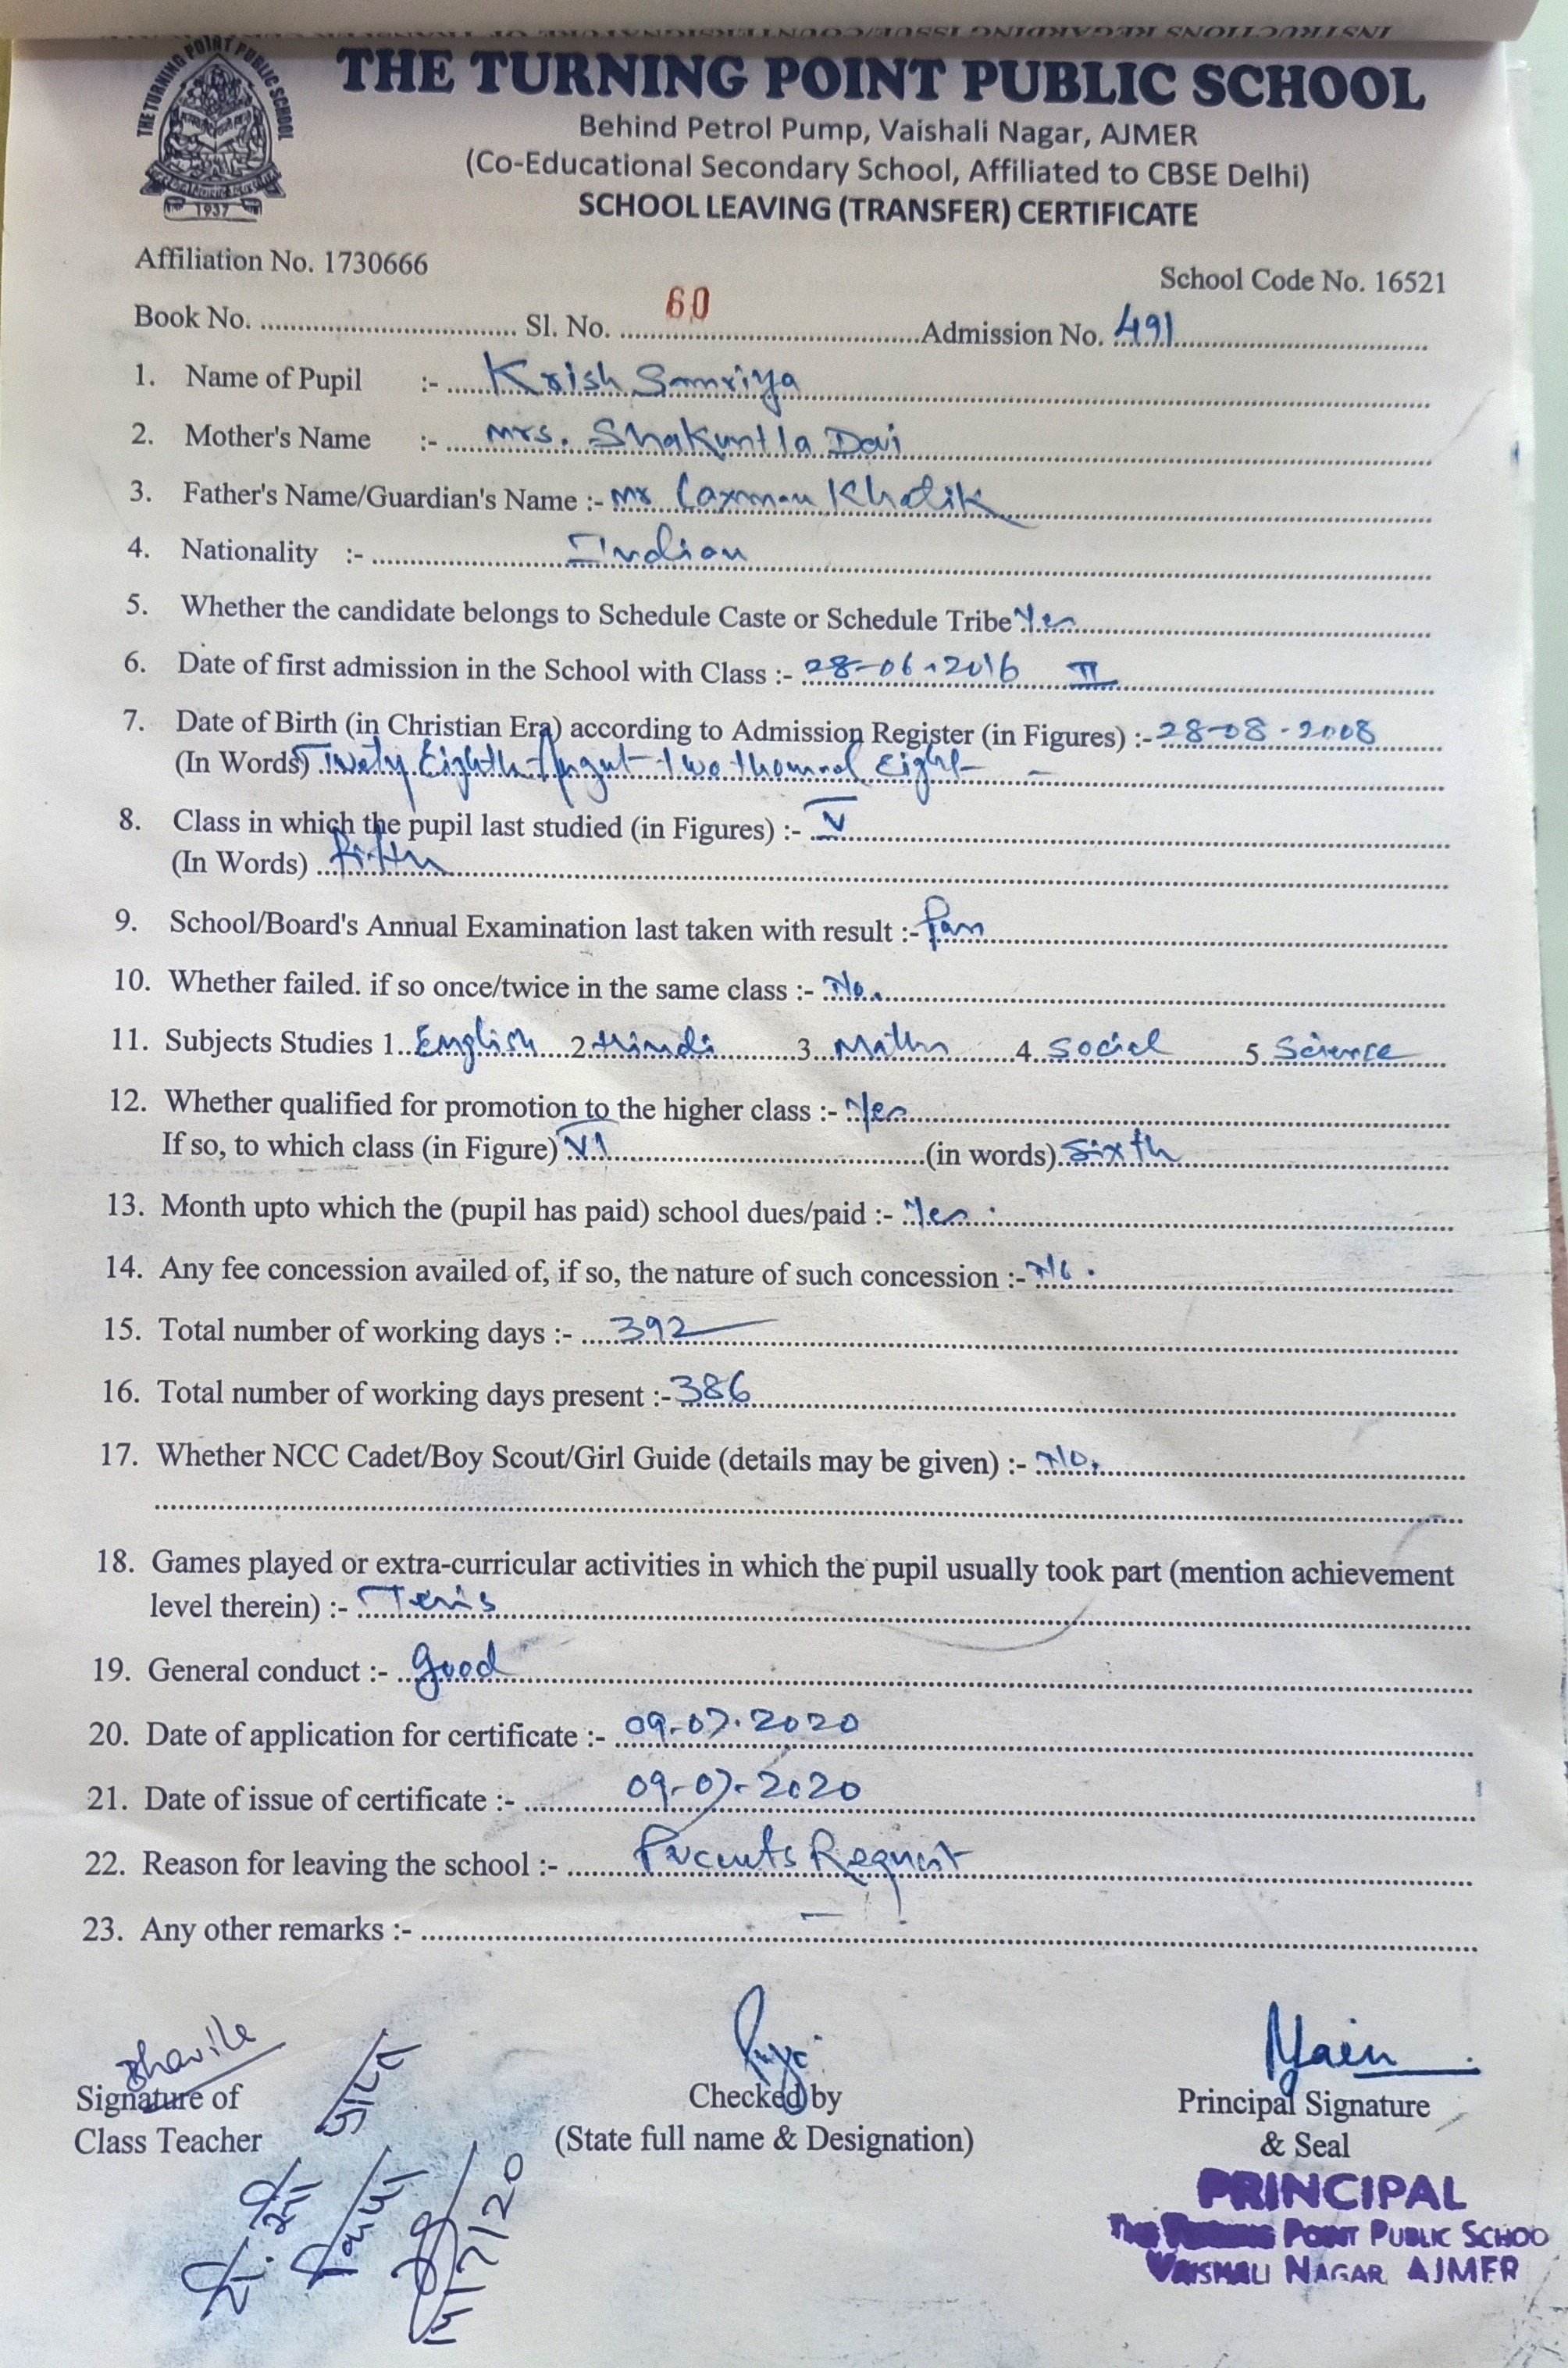 INSTRUCTIONS REGARDING ISSUE/COUNTERSIGNATURE OF TRANSFER
THE TURNING POINT PUBLIC SCHOOL
1937
THE TURNING POINT PUBLIC SCHOOL
Behind Petrol Pump, Vaishali Nagar, AJMER
(Co-Educational Secondary School, Affiliated to CBSE Delhi)
SCHOOL LEAVING (TRANSFER) CERTIFICATE
Affiliation No. 1730666
School Code No. 16521
Book No. .......... Sl. No. 60 Admission No. 491
1. Name of Pupil :- Krish Samriya
2. Mother's Name :- Mrs. Shakuntla Davi
3. Father's Name/Guardian's Name :- Mr Laxman Khatik
4. Nationality :- Indian
5. Whether the candidate belongs to Schedule Caste or Schedule Tribe Yes
6. Date of first admission in the School with Class :- 28-06-2016 II
7. Date of Birth (in Christian Era) according to Admission Register (in Figures) :- 28-08-2008
(In Words) Twety Eighth August Two thousand Eight
8. Class in which the pupil last studied (in Figures) :- V
(In Words) Fifth
9. School/Board's Annual Examination last taken with result :- Pass
10. Whether failed. if so once/twice in the same class :- No.
11. Subjects Studies 1. English 2. Hindi 3. Maths 4. Social 5. Science
12. Whether qualified for promotion to the higher class :- Yes
If so, to which class (in Figure) VI (in words) Sixth
13. Month upto which the (pupil has paid) school dues/paid :- Yes.
14. Any fee concession availed of, if so, the nature of such concession :- No.
15. Total number of working days :- 392
16. Total number of working days present :- 386
17. Whether NCC Cadet/Boy Scout/Girl Guide (details may be given) :- No.
18. Games played or extra-curricular activities in which the pupil usually took part (mention achievement
level therein) :- Tenis
19. General conduct :- Good
20. Date of application for certificate :- 09.07.2020
21. Date of issue of certificate :- 09-07-2020
22. Reason for leaving the school :- Parents Request
23. Any other remarks :- –
Signature of
Class Teacher
Checked by
(State full name & Designation)
Principal Signature
& Seal
PRINCIPAL
The Turning Point Public Schoo
Vaishali Nagar, AJMER